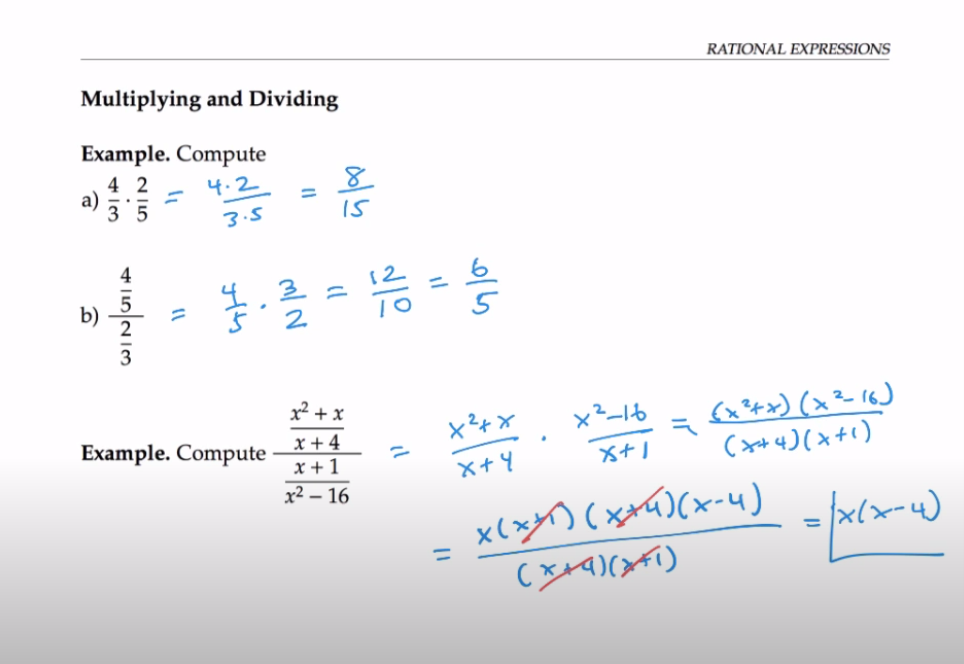 RATIONAL EXPRESSIONS
Multiplying and Dividing
Example. Compute
a) 4/3 · 2/5 = 4·2/3·5 = 8/15
b) (4/5)/(2/3) = 4/5 · 3/2 = 12/10 = 6/5
Example. Compute ((x² + x)/(x + 4))/((x + 1)/(x² − 16)) = (x²+x)/(x+4) · (x²−16)/(x+1) = (x²+x)(x²−16)/(x+4)(x+1)
= x(x+1)(x+4)(x−4)/(x+4)(x+1) = x(x−4)